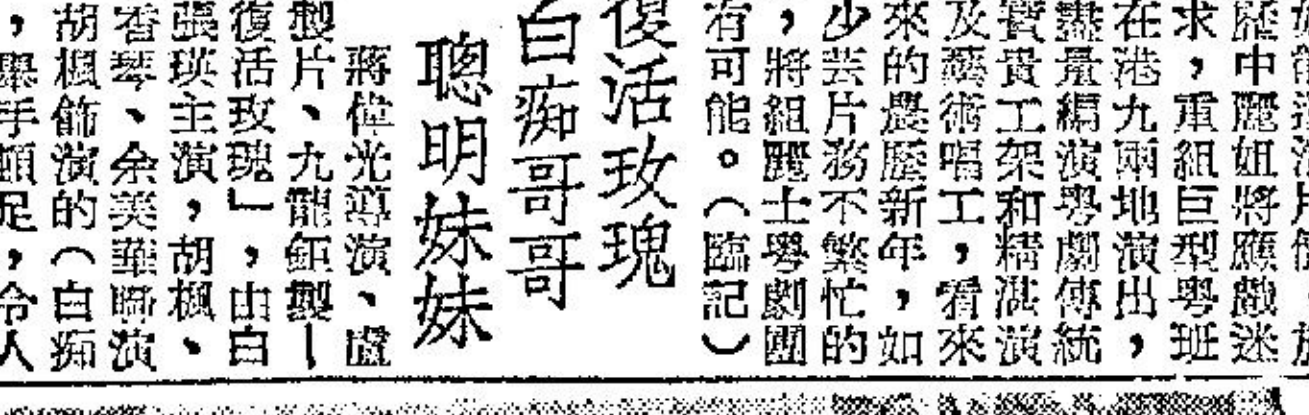 歷中麗姐將應戲迷
求，重組巨型粵班
在港九兩地演出，
盡量編演粵劇傳統
寶貴工架和精湛演
及藝術唱工，看來
來的農歷新年，如
少芸片務不繁忙的
，將組麗士粵劇團
有可能。（臨記）
復活玫瑰
白痴哥哥
聰明妹妹
蔣偉光導演、盧
製片、九龍鉅製—
復活玫瑰」，由白
張瑛主演，胡楓、
香琴、余美華瞬演
胡楓飾演的（白痴
，舉手頓足，令人